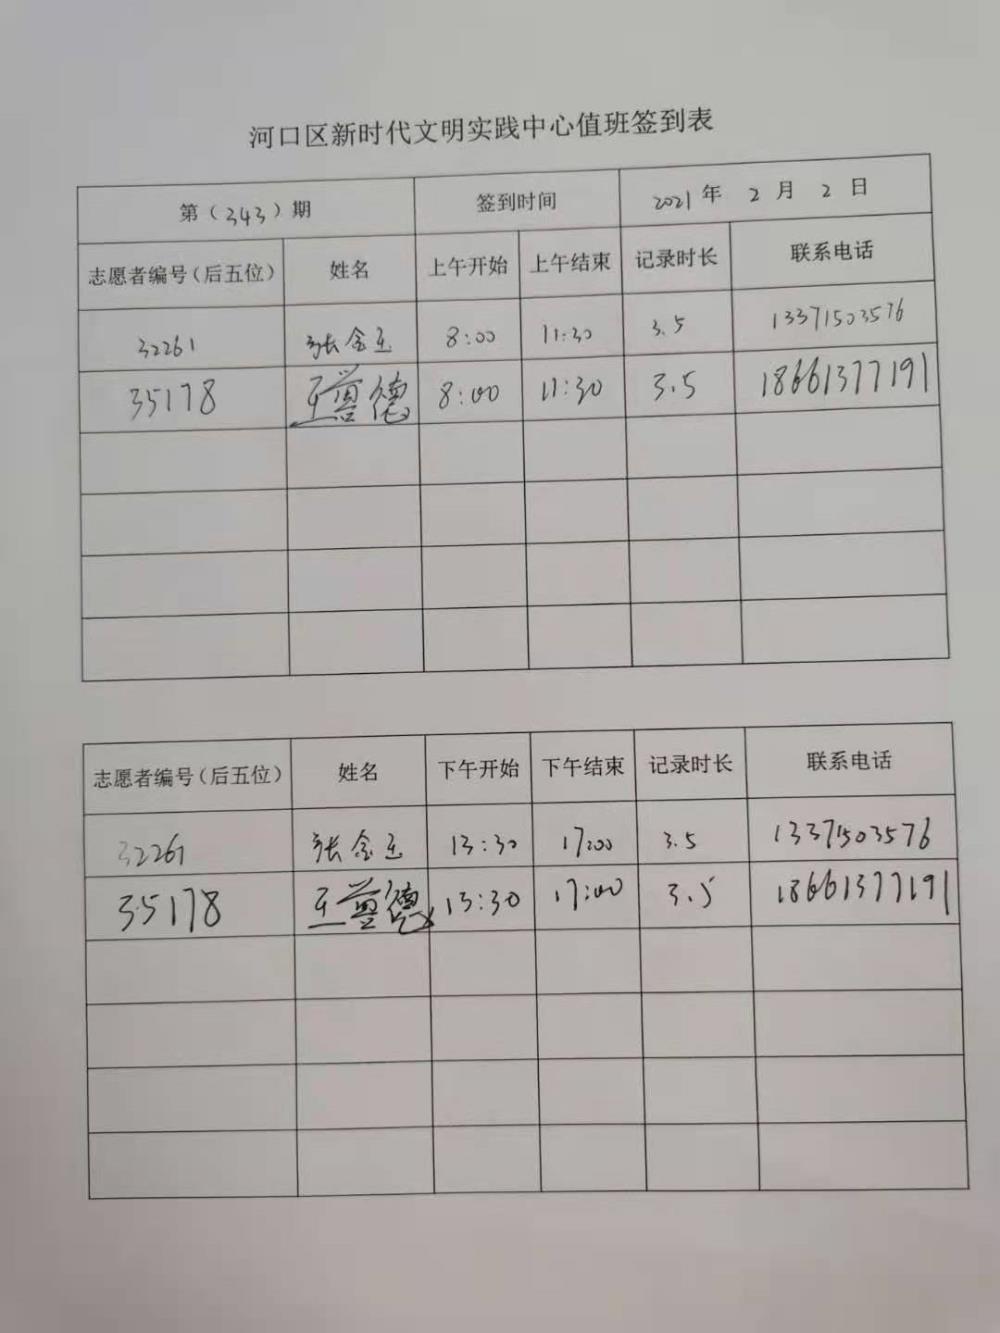 河口区新时代文明实践中心值班签到表
第（343）期 签到时间 2021年 2月 2日
志愿者编号（后五位） 姓名 上午开始 上午结束 记录时长 联系电话
32261 张金玉 8:00 11:30 3.5 13371503576
35178 王益德 8:00 11:30 3.5 18661377191
志愿者编号（后五位） 姓名 下午开始 下午结束 记录时长 联系电话
32261 张金玉 13:30 17:00 3.5 13371503576
35178 王益德 13:30 17:00 3.5 18661377191